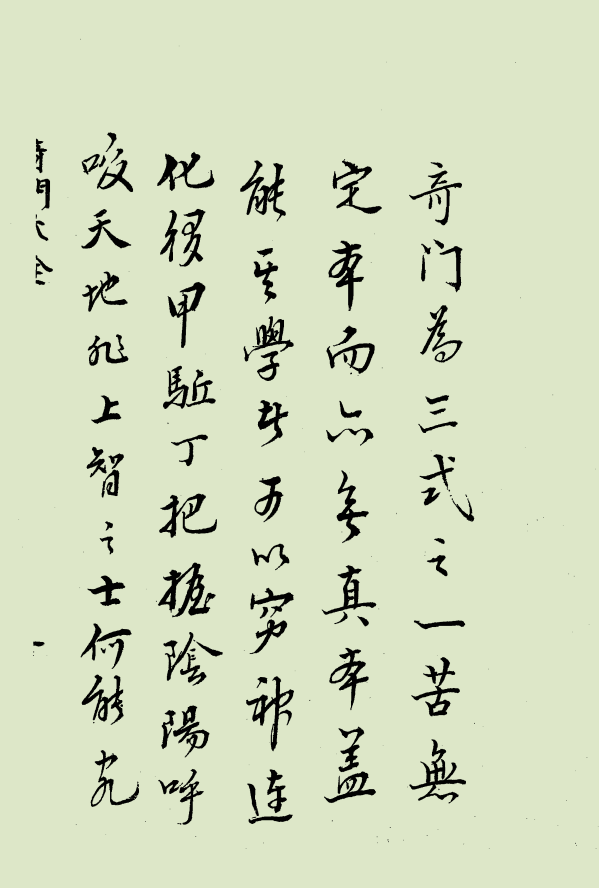 奇门為三式之一苦無
定夲而亦無真夲盖
能其學者可以穷神達
化役甲駈丁把握陰陽呼
吸天地非上智之士何能究
奇門大全
一